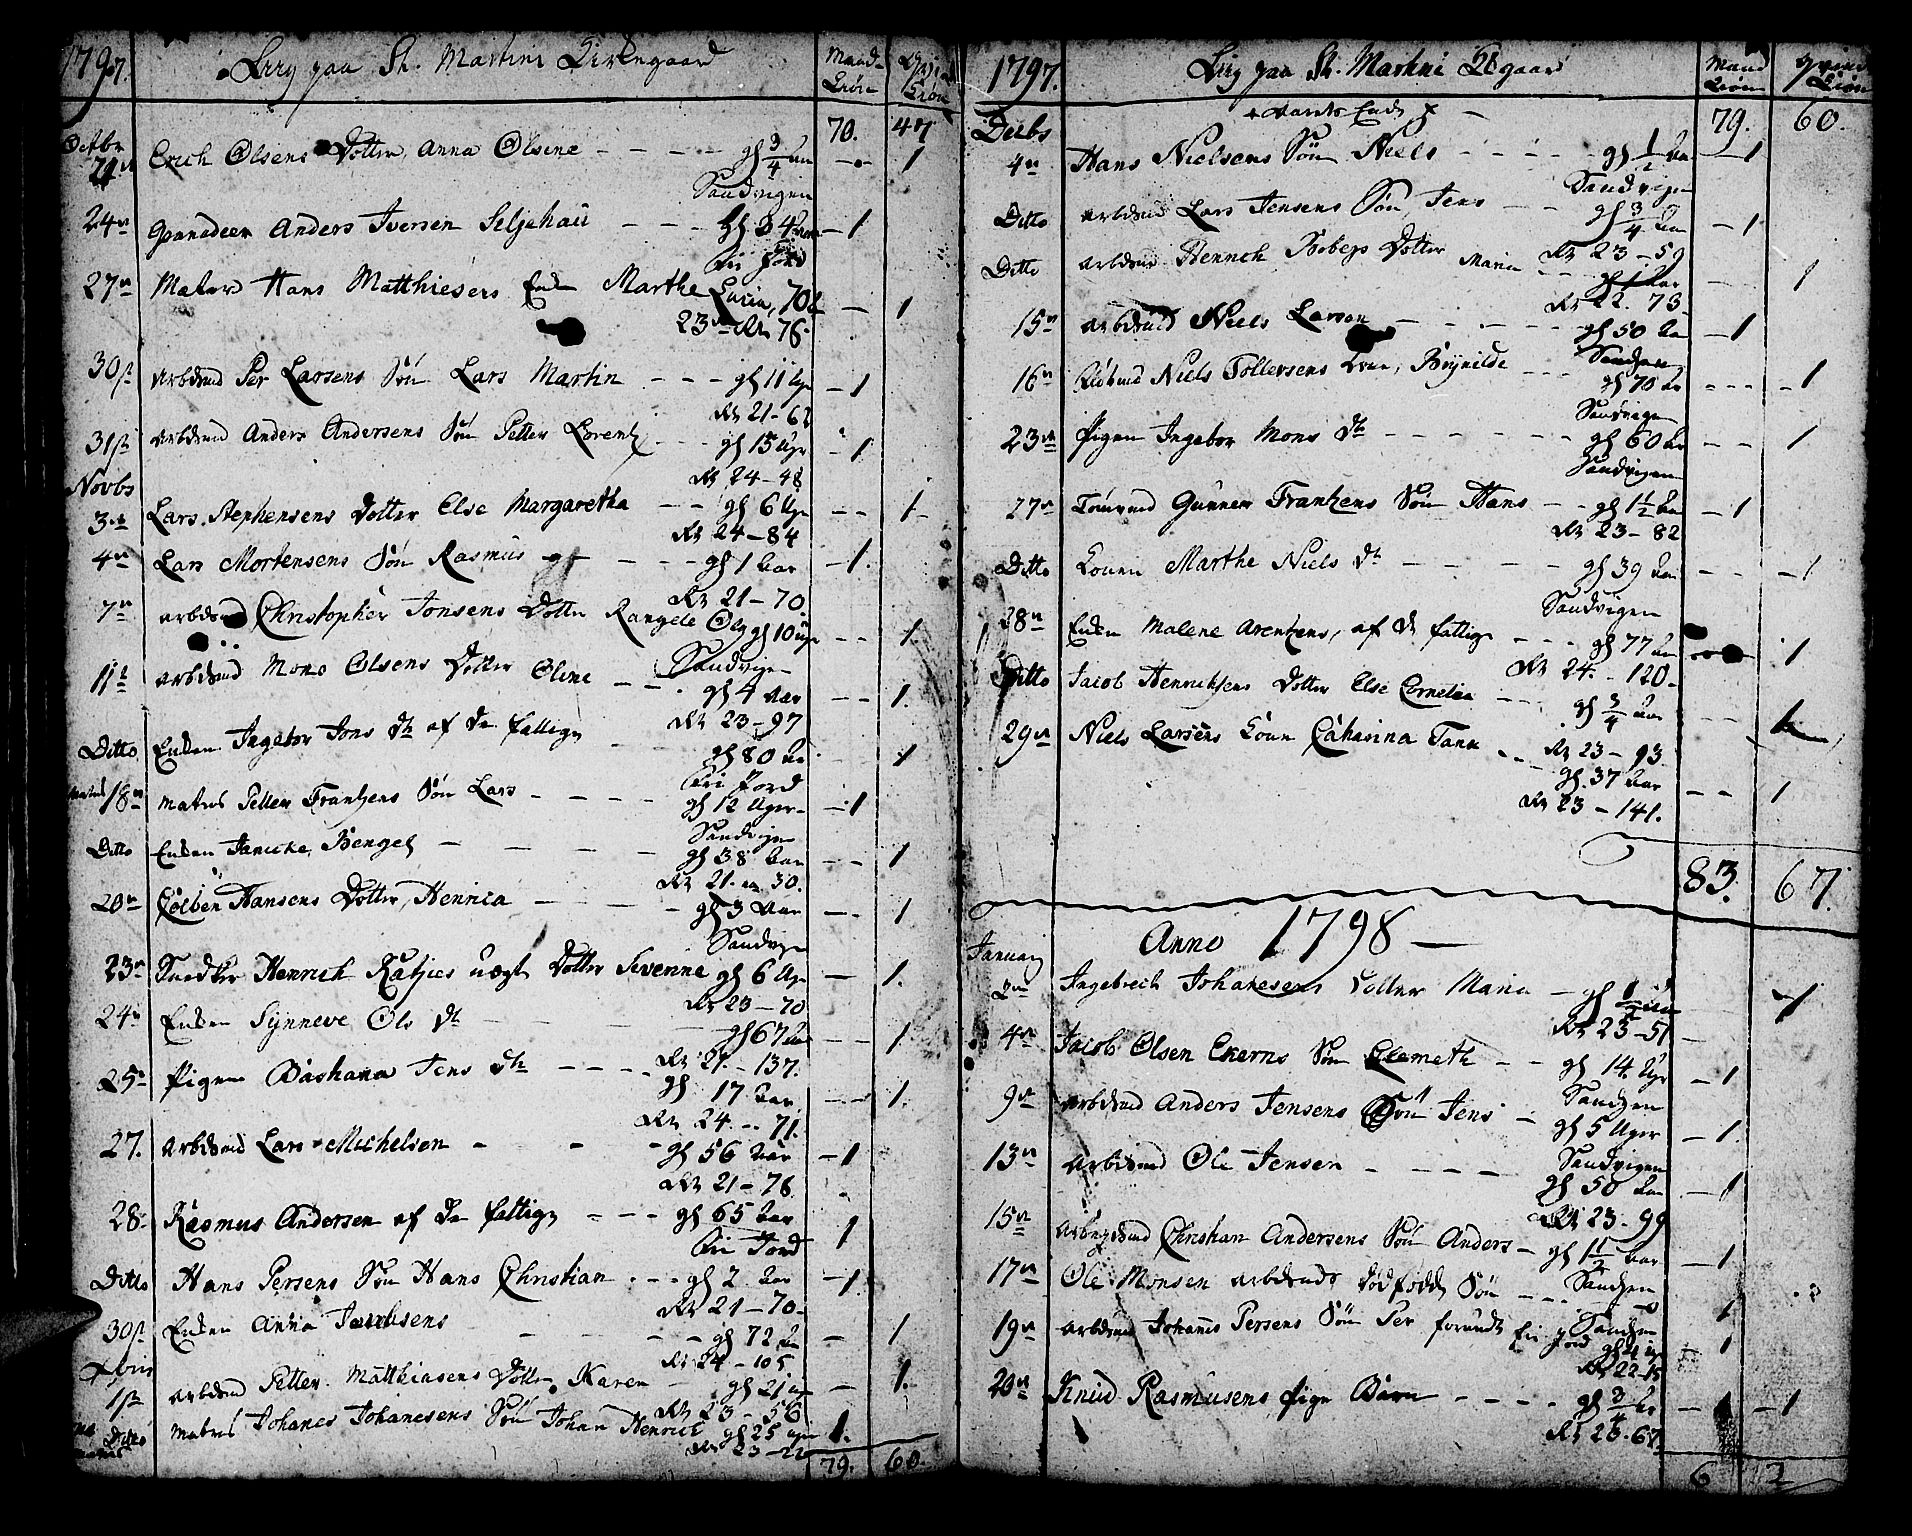 1797.
Liig paa St. Martini Kirkegaard
Mand-
Kiøn
Qvind
Kiøn
Octbr
70.
47
21de
Erich Olsens Dotter, Anna Olsine - - - - gl 3/4 Aar
1
Sandvigen
24de
Granadeer Anders Iversen Seljehau - - - gl 34 Aar
1
fri Jord
27de
Matros Hans Matthiesens Enke Marthe Lucia, 70 Aar
1
23de Rk 76.
30te
Arbdsmd Per Larsens Søn Lars Martin - - - gl 11 Uger
1
Rk 21-62
31te
Arbdsmd Anders Andersens Søn Petter Lorentz - - - gl 15 Uger
1
Rk 24-48
Novbr
3de
Lars Stephensens Dotter Else Margaretha - - gl 6 Uger
1
Rk 24-84
4de
Lars Mortensens Søn Rasmus - - - gl 1 Aar
1.
Rk 21-70
7de
Arbdsmd Christopher Jonsens Dotter Rangele Ols gl 10 Uger
1.
Sandvigen
11te
Arbdsmd Mons Olsens Dotter Oline - - gl 4 Aar
1.
Rk 23-97
Ditto
Enken Ingebor Jons dtr af de fattige
gl 80 Aar
1
fri Jord
18de
Matros Petter Frantzens Søn Lars - - - - gl 12 Uger
1
Sandvigen
Ditto
Enken Janicke Bengels - - - gl 38 Aar
1
Rk 21. 30.
20de
Torben Hansens Dotter, Henrica - - - - gl 3 Aar
1
Sandvigen
23de
Snedker Henrich Ratjies uægt Dotter Severine gl 6 Uger
1.
Rk 23-70
24de
Enken Synneve Ols Dtr - - - gl 67 Aar
1.
Rk 21.-137.
25de
Pigen Barbara Jens dtr - - - - gl 17 Aar
1.
Rk 24 - 71.
27.
Arbdsmd Lars Michelsen - - - gl 56 Aar
1
Rk 21-76
28.
Rasmus Andersen af de fattige - - - gl 65 Aar
1
fri Jord
Ditto
Hans Persens Søn Hans Christian - - - gl 2 Aar
1.
Rk 21-70-
30te
Enken Anna Jacobsens - - - - gl 72 Aar
1
Rk 24-105
Xbris
1te
Arbdsmd Petter Matthiasens Dotter Karen - gl 21 Uger
1.
Rk 23-56
Ditto
Matros Johanes Johanesens Søn Johan Henrich gl 25 Uger
1.
Rk 23-22
79.
60.
1797.
Liig paa St. Martini Kgaard
Mand
Kiøn
Qvind
Kiøn
Decbr
Aarets Ende
79.
60.
4de
Hans Nielsens Søn Niels - - - - gl 1/2 Aar
1
Sandvigen
Ditto
Arbdsmd Lars Jensens Søn, Jens - - gl 3/4 Aar
1
Rk 23-59
Ditto
Arbdsmd Henrich Bobergs Dotter Maria - - gl 1 Aar
1
Rk 22. 73
15de
Arbdsmd Niels Larsen - - - - gl 50 Aar
1
Sandvigen
16de
Niels Tollevsens Kone, Brynilde - - - gl 70 Aar
1
Sandvigen
23de
Pigen Ingebor Mons dtr - - - - - gl 60 Aar
1
Sandvigen
27de
Tømrmd Gunner Frantzens Søn Hans - - gl 1 1/2 Aar
1
Rk 23-82
Ditto
Konen Marthe Niels dtr - - - - gl 39 Aar
1
Sandvigen
28de
Enken Malene Arentzens, af de fattige - - - gl 77 Aar
1
Rk 24. - 120-
Ditto
Jacob Henrichsens Dotter Else Cornelia - - - gl 3/4 Aar
1
Rk 23-93
29de
Niels Larsens Kone Catharina Tank - - gl 37 Aar
1
Rk 23-141.
83.
67.
Anno 1798
Januarj
2de
Ingebrecht Johanesens Dotter Maria - gl 1/2 Aar
1
Rk 23-51
4de
Jacob Olsen Ekerns Søn Clemeth - - gl 14 Uger
1
Sandvigen
9de
Arbdsmd Anders Jensens Søn Jens - gl 5 Uger
1.
Sandvigen
13de
Arbdsmd Ole Jensen - - - - gl 50 Aar
1
Rk 23-99
15de
Arbeydsmd Christian Andersens Søn Anders - gl 1 1/2 Aar
1
Sandvigen
17de
Ole Monsen Arbdsmds dødfødde Søn - - -
1
Sandvigen
19de
Arbdsmd Johanes Persens Søn Per forundt fri Jord gl 4 Uger
1
Rk 22-15
20de
Knud Rasmusens Pige Barn - - - - gl 3/4 Aar
1
Rk 23-67.
6
2